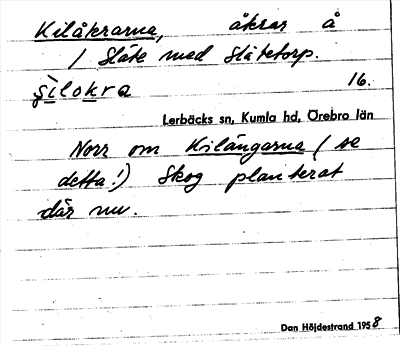 Kilåkrarna, åkrar å
1 Släte med Slätetorp.
şìlokra 16.
Lerbäcks sn, Kumla hd, Örebro län
Norr om Kilängarna (se
detta!) Skog planterat
där nu.
Dan Höjdestrand 1958